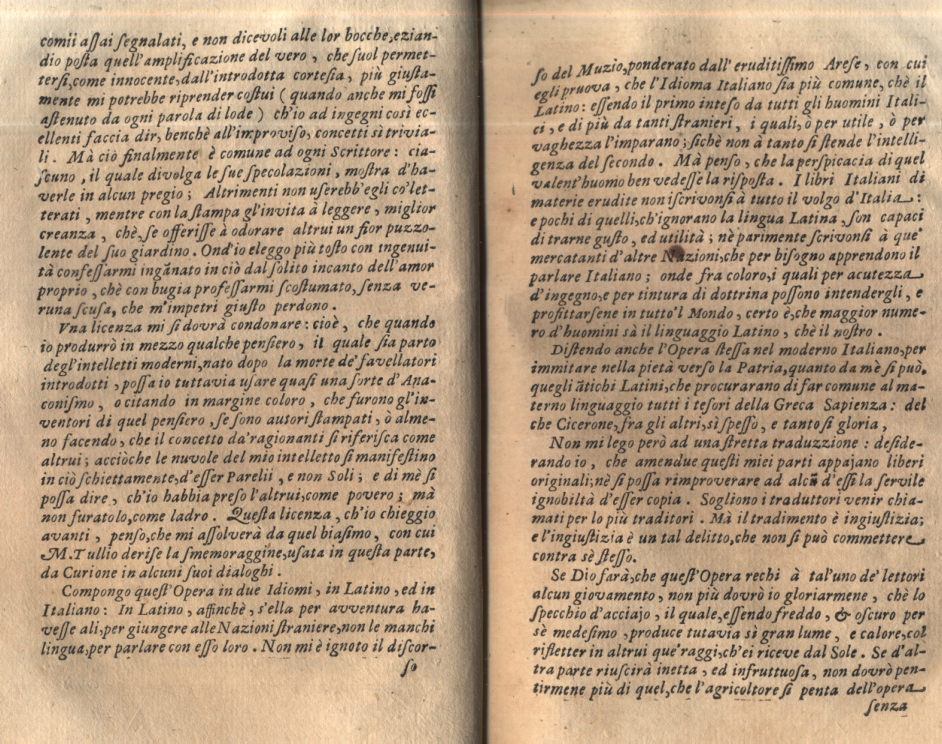 comii aſſai ſegnalati, e non dicevoli alle lor bocche,ezian-
dio poſta quell'amplificazione del vero, che ſuol permet-
terſi,come innocente,dall'introdotta corteſia, più giuſta-
mente mi potrebbe riprender coſtui ( quando anche mi foſſi
aſtenuto da ogni parola di lode ) ch'io ad ingegni così ec-
cellenti faccia dir, benchè all'improviſo, concetti sì trivia-
li. Mà ciò finalmente è comune ad ogni Scrittore: cia-
ſcuno, il quale divolga le ſue ſpecolazioni, moſtra d'ha-
verle in alcun pregio; Altrimenti non uſerebb'egli co'let-
terati, mentre con la ſtampa gl'invita à leggere, miglior
creanza, chè,ſe offeriſſe à odorare altrui un fior puzzo-
lente del ſuo giardino. Ond'io eleggo più toſto con ingenui-
tà confeſſarmi ingānato in ciò dal ſolito incanto dell'amor
proprio, chè con bugia profeſſarmi ſcoſtumato, ſenza ve-
runa ſcuſa, che m'impetri giuſto perdono.
Vna licenza mi ſi dovrà condonare: cioè, che quando
io produrrò in mezzo qualche penſiero, il quale ſia parto
degl'intelletti moderni,nato dopo la morte de'favellatori
introdotti, poſſa io tuttavia uſare quaſi una ſorte d'Ana-
coniſmo, o citando in margine coloro, che furono gl'in-
ventori di quel penſiero, ſe ſono autori ſtampati, ò alme-
no facendo, che il concetto da'ragionanti ſi riferiſca come
altrui; acciòche le nuvole del mio intelletto ſi manifeſtino
in ciò ſchiettamente,d'eſſer Parelii, e non Soli; e di mè ſi
poſſa dire, ch'io habbia preſo l'altrui,come povero; mà
non furatolo,come ladro. Queſta licenza, ch'io chieggio
avanti, penſo,che mi aſſolverà da quel biaſimo, con cui
M.Tullio deriſe la ſmemoraggine,uſata in queſta parte,
da Curione in alcuni ſuoi dialoghi.
Compongo queſt'Opera in due Idiomi, in Latino, ed in
Italiano: In Latino, affinchè, s'ella per avventura ha-
veſſe ali,per giungere alle Nazioni ſtraniere,non le manchi
lingua,per parlare con eſſo loro. Non mi è ignoto il diſcor-
ſo
ſo del Muzio,ponderato dall'eruditiſſimo Areſe, con cui
egli pruova, che l'Idioma Italiano ſia più comune, chè il
Latino: eſſendo il primo inteſo da tutti gli huomini Itali-
ci, e di più da tanti ſtranieri, i quali, ò per utile, ò per
vaghezza l'imparano; ſichè non à tanto ſi ſtende l'intelli-
genza del ſecondo. Mà penſo, che la perſpicacia di quel
valent'huomo ben vedeſſe la riſpoſta. I libri Italiani di
materie erudite non iſcrivonſi à tutto il volgo d'Italia:
e pochi di quelli,ch'ignorano la lingua Latina, ſon capaci
di trarne guſto, ed utilità; nè parimente ſcrivonſi à que'
mercatanti d'altre Nazioni,che per biſogno apprendono il
parlare Italiano; onde fra coloro,i quali per acutezza
d'ingegno,e per tintura di dottrina poſſono intendergli, e
profittarſene in tutto'l Mondo, certo è,che maggior nume-
ro d'huomini sà il linguaggio Latino, chè il noſtro.
Diſtendo anche l'Opera ſteſſa nel moderno Italiano,per
immitare nella pietà verſo la Patria,quanto da mè ſi può,
quegli ātichi Latini,che procurarano di far comune al ma-
terno linguaggio tutti i teſori della Greca Sapienza: del
che Cicerone,fra gli altri,sì ſpeſſo, e tanto ſi gloria,
Non mi lego però ad una ſtretta traduzzione: deſide-
rando io, che amendue queſti miei parti appajano liberi
originali;nè ſi poſſa rimproverare ad alcū d'eſſi la ſervile
ignobiltà d'eſſer copia. Sogliono i traduttori venir chia-
mati per lo più traditori. Mà il tradimento è ingiuſtizia;
e l'ingiuſtizia è un tal delitto,che non ſi può commettere
contra sè ſteſſo.
Se Dio farà,che queſt'Opera rechi à tal'uno de'lettori
alcun giovamento, non più dovrò io gloriarmene, chè lo
ſpecchio d'acciajo, il quale,eſſendo freddo, & oſcuro per
sè medeſimo, produce tutavia sì gran lume, e calore,col
rifletter in altrui que'raggi,ch'ei riceve dal Sole. Se d'al-
tra parte riuſcirà inetta, ed infruttuoſa, non dovrò pen-
tirmene più di quel,che l'agricoltore ſi penta dell'opera
ſenza